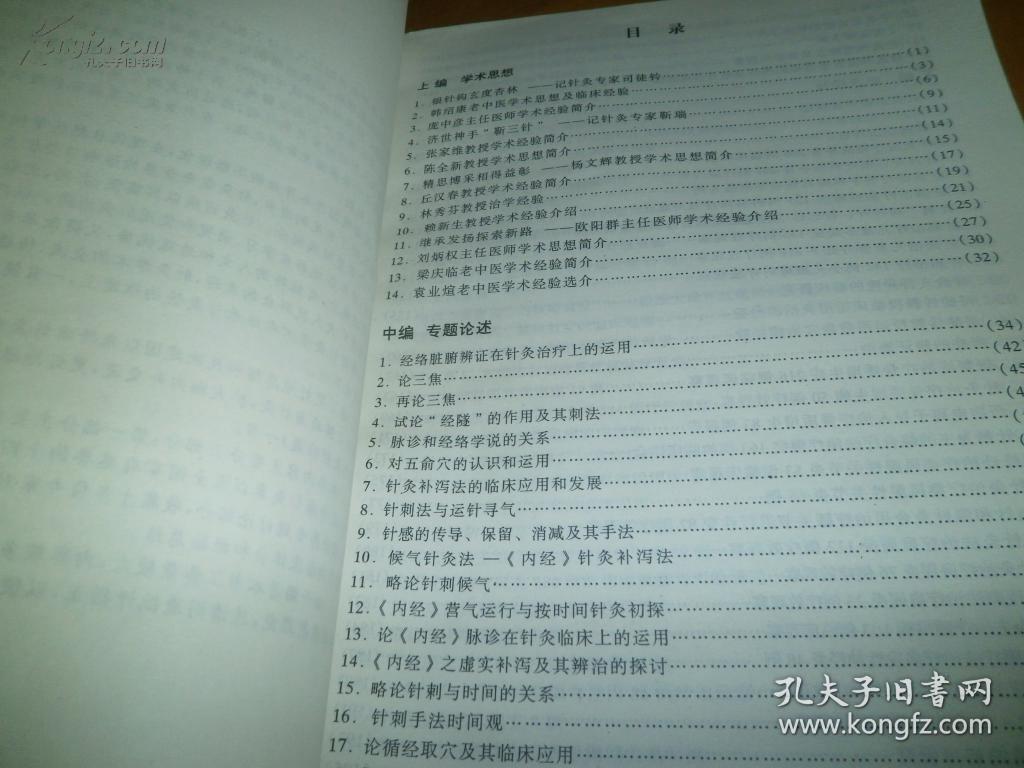 Kongfz.com
孔夫子旧书网
目 录
上编 学术思想
1. 银针钩玄度杏林 ——记针灸专家司徒铃……(1)
2. 韩绍康老中医学术思想及临床经验……(3)
3. 庞中彦主任医师学术经验简介……(6)
4. 济世神手“靳三针” ——记针灸专家靳瑞……(9)
5. 张家维教授学术经验简介……(11)
6. 陈全新教授学术思想简介……(14)
7. 精思博采相得益彰 ——杨文辉教授学术思想简介……(15)
8. 丘汉春教授学术经验简介……(17)
9. 林秀芬教授治学经验……(19)
10. 赖新生教授学术经验介绍……(21)
11. 继承发扬探索新路 ——欧阳群主任医师学术经验介绍……(25)
12. 刘炳权主任医师学术思想简介……(27)
13. 梁庆临老中医学术经验简介……(30)
14. 袁业煊老中医学术经验选介……(32)
中编 专题论述
1. 经络脏腑辨证在针灸治疗上的运用……(34)
2. 论三焦……(42
3. 再论三焦……(45
4. 试论“经隧”的作用及其刺法……(4
5. 脉诊和经络学说的关系……(
6. 对五俞穴的认识和运用……
7. 针灸补泻法的临床应用和发展……
8. 针刺法与运针寻气……
9. 针感的传导、保留、消减及其手法……
10. 候气针灸法 —《内经》针灸补泻法……
11. 略论针刺候气……
12.《内经》营气运行与按时间针灸初探……
13. 论《内经》脉诊在针灸临床上的运用……
14.《内经》之虚实补泻及其辨治的探讨……
15. 略论针刺与时间的关系……
16. 针刺手法时间观……
17. 论循经取穴及其临床应用……
孔夫子旧书网
www.kongfz.com